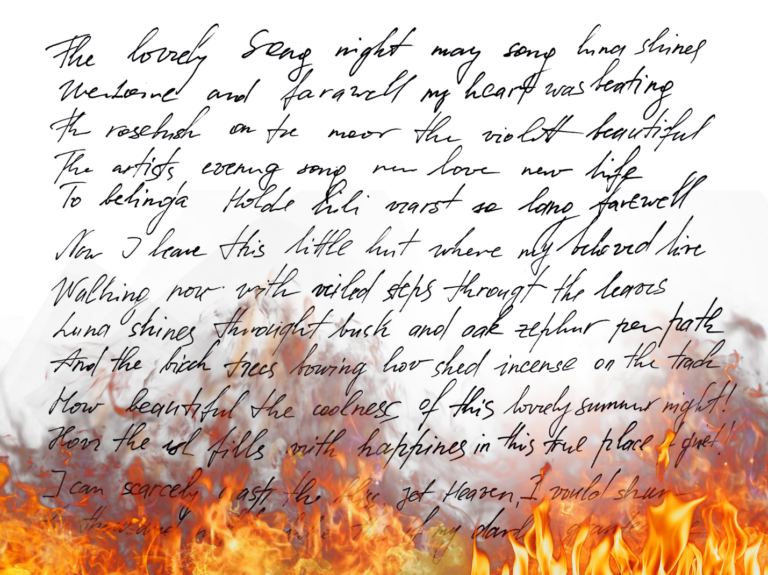 The lovely Song night may song luna shines
Welcome and farawell my heart was beating
Th rosebush on the moor the violett beautiful
The artists evening song new love new life
To belinda Holde Lili warst so long farewell
Now I leave this little hut where my beloved live
Walking now with veiled steps througt the leaves
Luna shines throught busk and oak zephur per path
And the birch trees bowing how shed incense on the track
How beautiful the coolness of this lovely summer night!
How the fills with happines in this true place quiet!
I can scarcely the yet Heaven, I would shun
of my